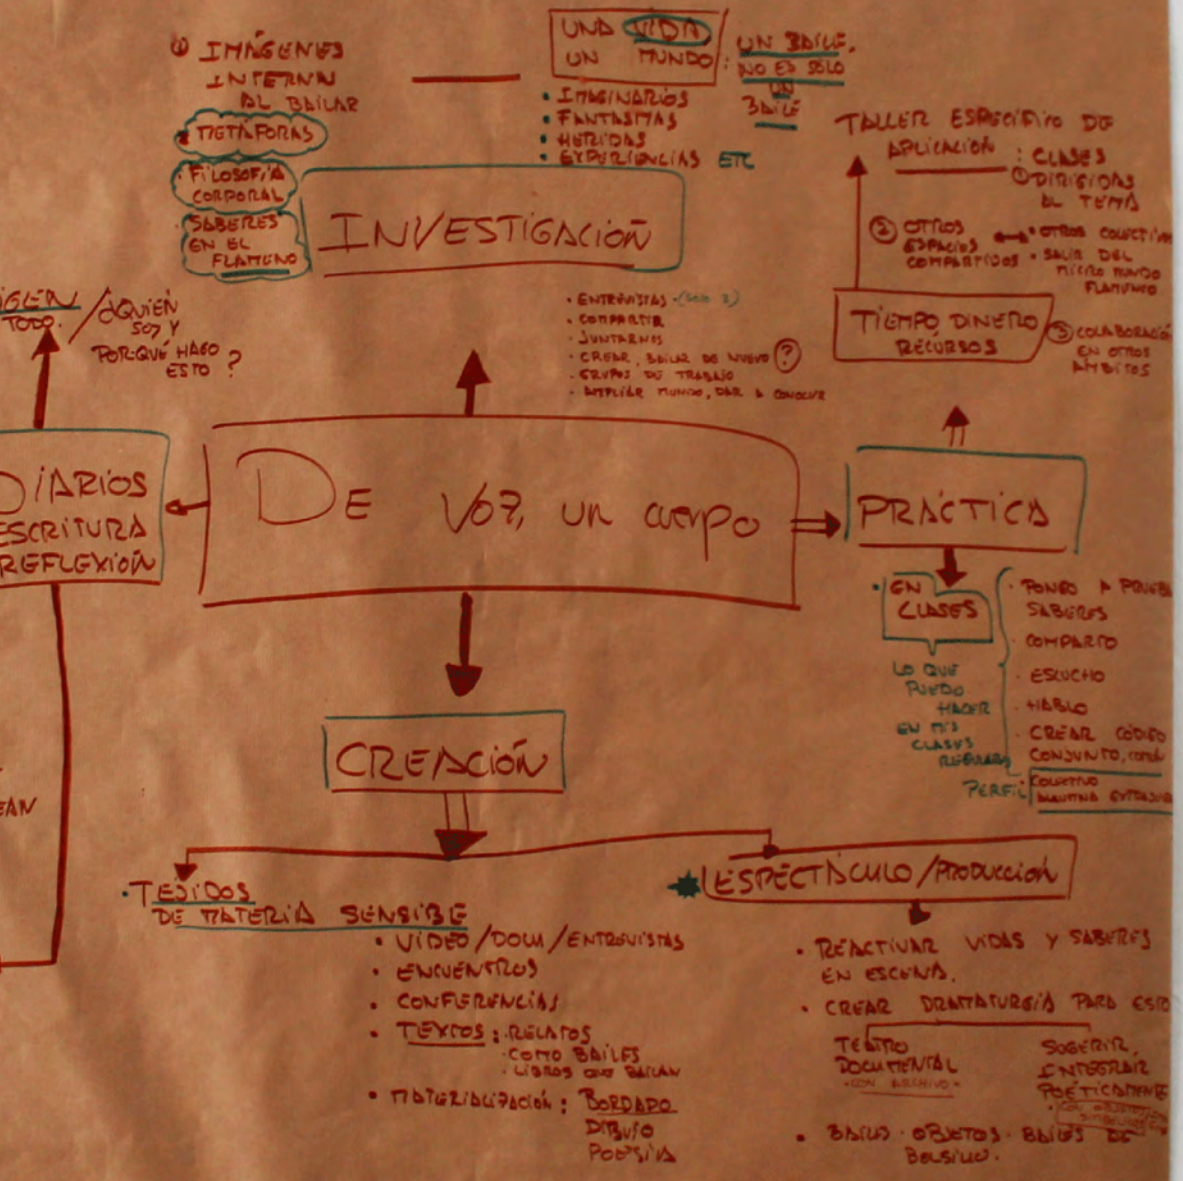 ① IMÁGENES
INTERNA
AL BAILAR
METÁFORAS
FILOSOFÍA
CORPORAL
SABERES
EN EL
FLAMENO
UNA VIDA
UN MUNDO :
UN BAILE.
NO ES SOLO
UN
BAILE
• IMAGINARIOS
• FANTASMAS
• HERIDAS
• EXPERIENCIAS ETC
INVESTIGACIÓN
TALLER ESPECIFICO DE
APLICACIÓN : CLASES
① DIRIGIDAS
AL TEMA
② OTROS
ESPACIOS
COMPARTIDOS
• OTROS COLECTIV
• SALIR DEL
MICRO MUNDO
FLAMENCO
TIEMPO, DINERO
RECURSOS
③ COLABORACIÓN
EN OTROS
ÁMBITOS
IGEN
TODO.
/ ¿QUIÉN
SOY Y
PORQUÉ HAGO
ESTO ?
• ENTREVISTAS - (SOLO 2)
• COMPARTIR
• JUNTARNOS
• CREAR, BAILAR DE NUEVO ?
• GRUPOS DE TRABAJO
• AMPLIAR MUNDO, DAR A CONOCER
DIARIOS
ESCRITURA
REFLEXIÓN
DE VOZ, UN CUERPO
PRÁCTICA
• EN
CLASES
LO QUE
PUEDO
HACER
EN MIS
CLASES
REGULARES
• PONGO A PRUEBA
SABERES
• COMPARTO
• ESCUCHO
• HABLO
• CREAR CÓDIGO
CONJUNTO,
PERFIL:
COLECTIVO
EAN
CREACIÓN
• TEJIDOS
DE MATERIA SENSIBLE
• VIDEO / DOCU / ENTREVISTAS
• ENCUENTROS
• CONFERENCIAS
• TEXTOS : • RELATOS
• COMO BAILES
• LIBROS QUE BAILAN
• MATERIALIZACIÓN : BORDADO
DIBUJO
POESÍA
ESPECTÁCULO / PRODUCCIÓN
• REACTIVAR VIDAS Y SABERES
EN ESCENA.
• CREAR DRAMATURGIA PARA ESTO
TEATRO
DOCUMENTAL
- CON ARCHIVO -
SUGERIR,
INTEGRAR
POÉTICAMENTE
• BAILES • OBJETOS • BAILES DE
BOLSILLO.